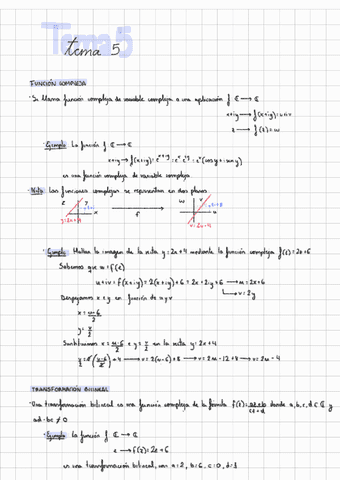 Tema 5
tema 5
FUNCIÓN COMPLEJA
· Se llama función compleja de variable compleja a una aplicación f: ℂ → ℂ
x+iy → f(x+iy) = u+iv
z → f(z) = w
· Ejemplo: La función f: ℂ → ℂ
x+iy → f(x+iy) = e^(x+iy) = e^x · e^(iy) = e^x (cos y + i sen y)
es una función compleja de variable compleja
· Nota: Las funciones complejas se representan en dos planos
z y w v
x f u
y = 2x+4 v = 2u-4
· Ejemplo: Hallar la imagen de la recta y = 2x+4 mediante la función compleja f(z) = 2z+6
Sabemos que w = f(z)
u+iv = f(x+iy) = 2(x+iy)+6 = 2x+2iy+6 → u = 2x+6
→ v = 2y
Despejamos x e y en función de u y v
x = (u-6)/2
y = v/2
Sustituimos x = (u-6)/2 e y = v/2 en la recta y = 2x+4
v/2 = 2((u-6)/2)+4 → v = 2(u-6)+8 → v = 2u-12+8 → v = 2u-4
TRANSFORMACIÓN BILINEAL
· Una transformación bilineal es una función compleja de la forma f(z) = (az+b)/(cz+d) donde a, b, c, d ∈ ℂ y
ad-bc ≠ 0
· Ejemplo: La función f: ℂ → ℂ
z → f(z) = 2z+6
es una transformación bilineal, con a=2, b=6, c=0, d=1